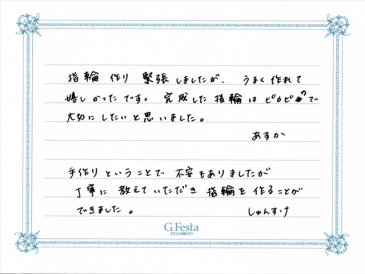 指輪作り 緊張しましたが、うまく作れて
嬉しかったです。完成した指輪はピカピカで
大切にしたいと思いました。
あすか
手作りということで不安もありましたが
丁寧に教えていただき指輪を作ることが
できました。
しゅんすけ
G.Festa
DIAMOND